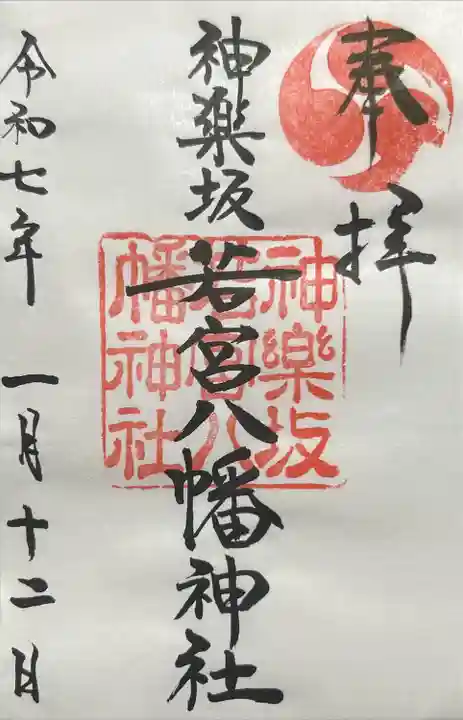 奉拝
神楽坂若宮八幡神社
神樂坂
若宮八
幡神社
令和七年一月十二日